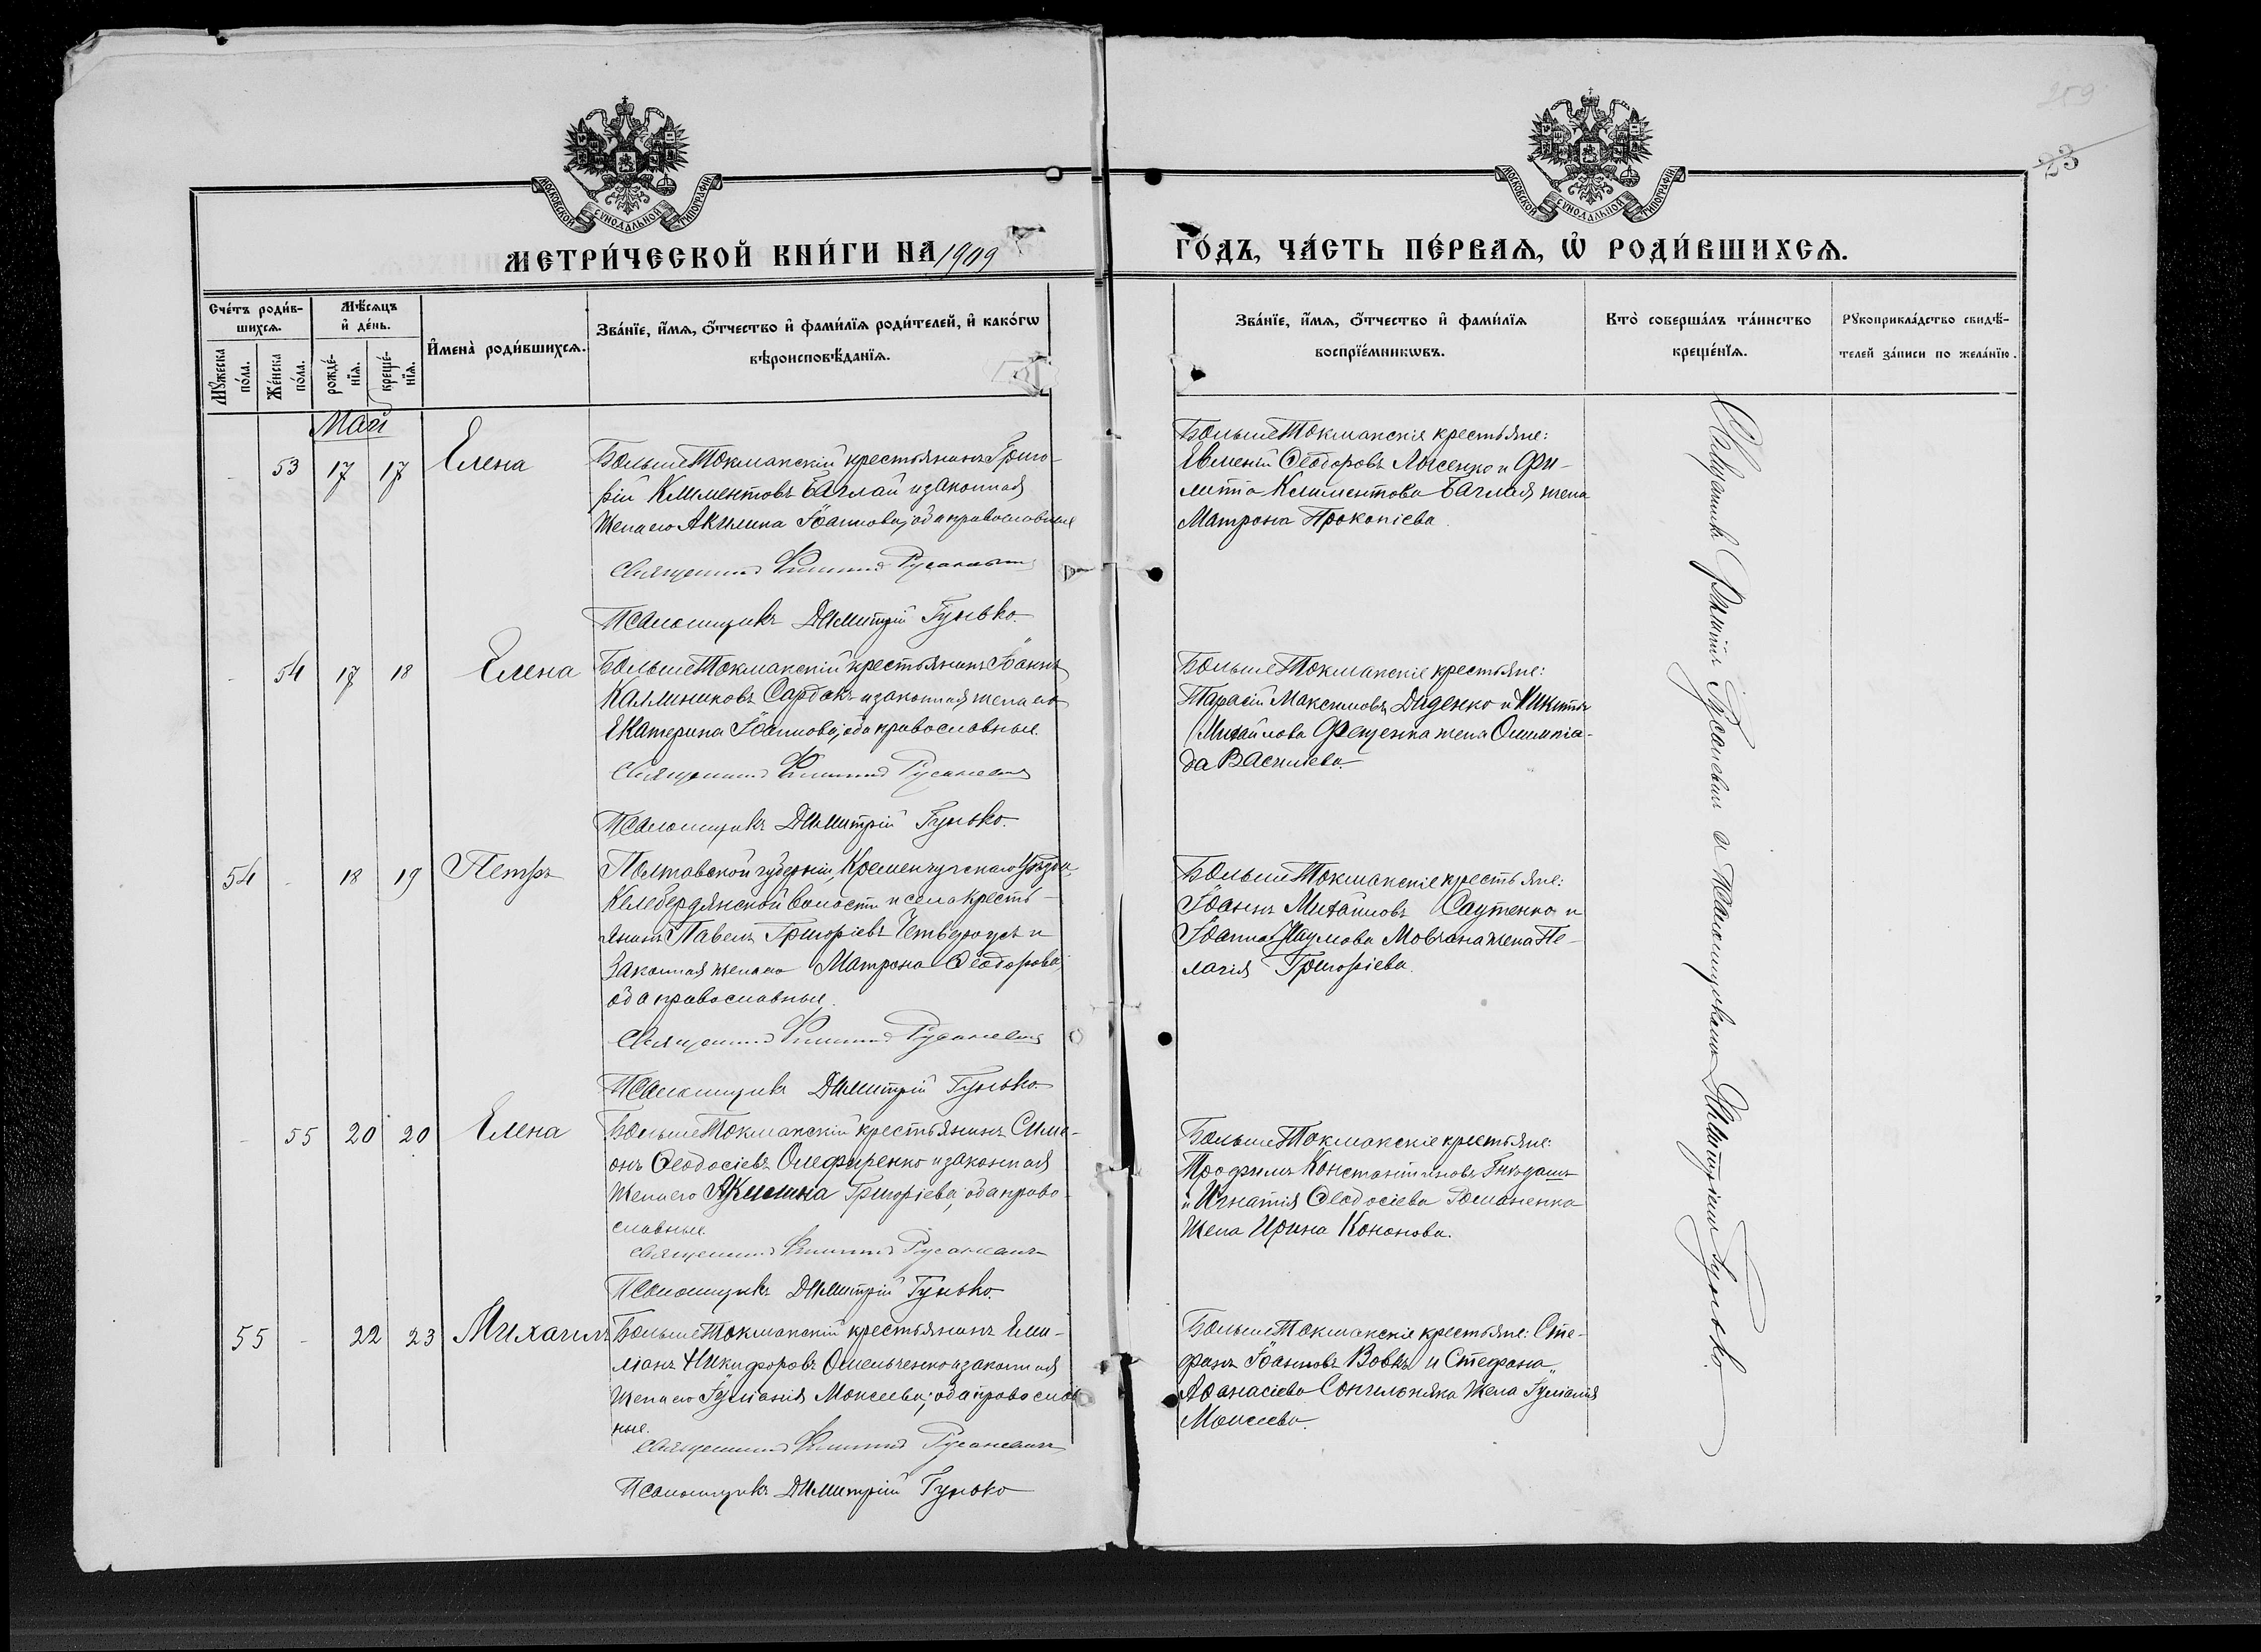 259
23
МОСКОВСКОЙ СѴНОДАЛЬНОЙ ТИПОГРАФІИ
МОСКОВСКОЙ СѴНОДАЛЬНОЙ ТИПОГРАФІИ
МЕТРИ́ЧЕСКОЙ КНИ́ГИ НА 1909
ГО́ДЪ, ЧА́СТЬ ПЕ́РВАѦ, Ѽ РОДИ́ВШИХСѦ.
Сче́тъ роди́в-
шихсѧ.
Мꙋ́жеска по́ла.
Же́нска по́ла.
Мѣ́сѧцъ
и҆ де́нь.
рожде́-
нїѧ.
креще́-
нїѧ.
И҆мена̀ роди́вшихсѧ.
Зва́нїе, и҆́мѧ, ѻ҆́тчество и҆ фами́лїѧ роди́телей, и҆ како́гѡ
вѣроисповѣ́данїѧ.
Зва́нїе, и҆́мѧ, ѻ҆́тчество и҆ фами́лїѧ
воспрїе́мникѡвъ.
Кто̀ соверша́лъ та́инство
креще́нїѧ.
Рꙋкоприкла́дство свидѣ́-
телей за́писи по жела́нїю.
Май
- 53 17 17 Елена
БольшеТокмакскій крестьянинъ Григо-
рій Климентовъ Баглай и законная
жена его Акилина Іоаннова; оба православные
Священникъ Филиппъ Русаневичъ
Псаломщикъ Димитрій Гунько.
БольшеТокмакскія крестьяне:
Евменій Ѳеодоровъ Лысенко и Фи-
липпа Климентова Баглая жена
Матрона Прокопіева.
- 54 17 18 Елена
БольшеТокмакскій крестьянинъ Іоаннъ
Каллиниковъ Сардакъ и законная жена его
Екатерина Іоаннова; оба православные.
Священникъ Филиппъ Русаневичъ
Псаломщикъ Димитрій Гунько.
БольшеТокмакскіе крестьяне:
Тарасій Максимовъ Диденко и Никиты
Михайлова Фещенка жена Олимпіа-
да Васильева.
54 - 18 19 Петръ
Полтавской губерніи, Кременчугскаго уѣзда,
Келебердянской волости и села кресть-
янинъ Павелъ Григоріевъ Четверусъ и
законная жена его Матрона Ѳеодорова;
оба православные.
Священникъ Филиппъ Русаневичъ
Псаломщикъ Димитрій Гунько.
БольшеТокмакскіе крестьяне:
Іоаннъ Михайловъ Саутенко и
Іоанна Наумова Мовчана жена Пе-
лагія Григоріева.
- 55 20 20 Елена
БольшеТокмакскій крестьянинъ Симе-
онъ Ѳеодосіевъ Олефиренко и законная
жена его Акилина Григоріева; оба право-
славные.
Священникъ Филиппъ Русаневичъ
Псаломщикъ Димитрій Гунько.
БольшеТокмакскіе крестьяне:
Трофимъ Константиновъ
и Игнатія Ѳеодосіева Романенка
жена Ирина Кононова.
55 - 22 23 Михаилъ
БольшеТокмакскій крестьянинъ Еми-
ліанъ Никифоровъ Омельченко и законная
жена его Іуліанія Моисеева; оба православ
ные.
Священникъ Филиппъ Русаневичъ
Псаломщикъ Димитрій Гунько
БольшеТокмакскіе крестьяне: Сте-
фанъ Іоанновъ Вовкъ и Стефана
Аѳанасіева жена Іуліанія
Моисеева.
Священникъ Филиппъ Русаневичъ съ Псаломщикомъ Димитріемъ Гунько.